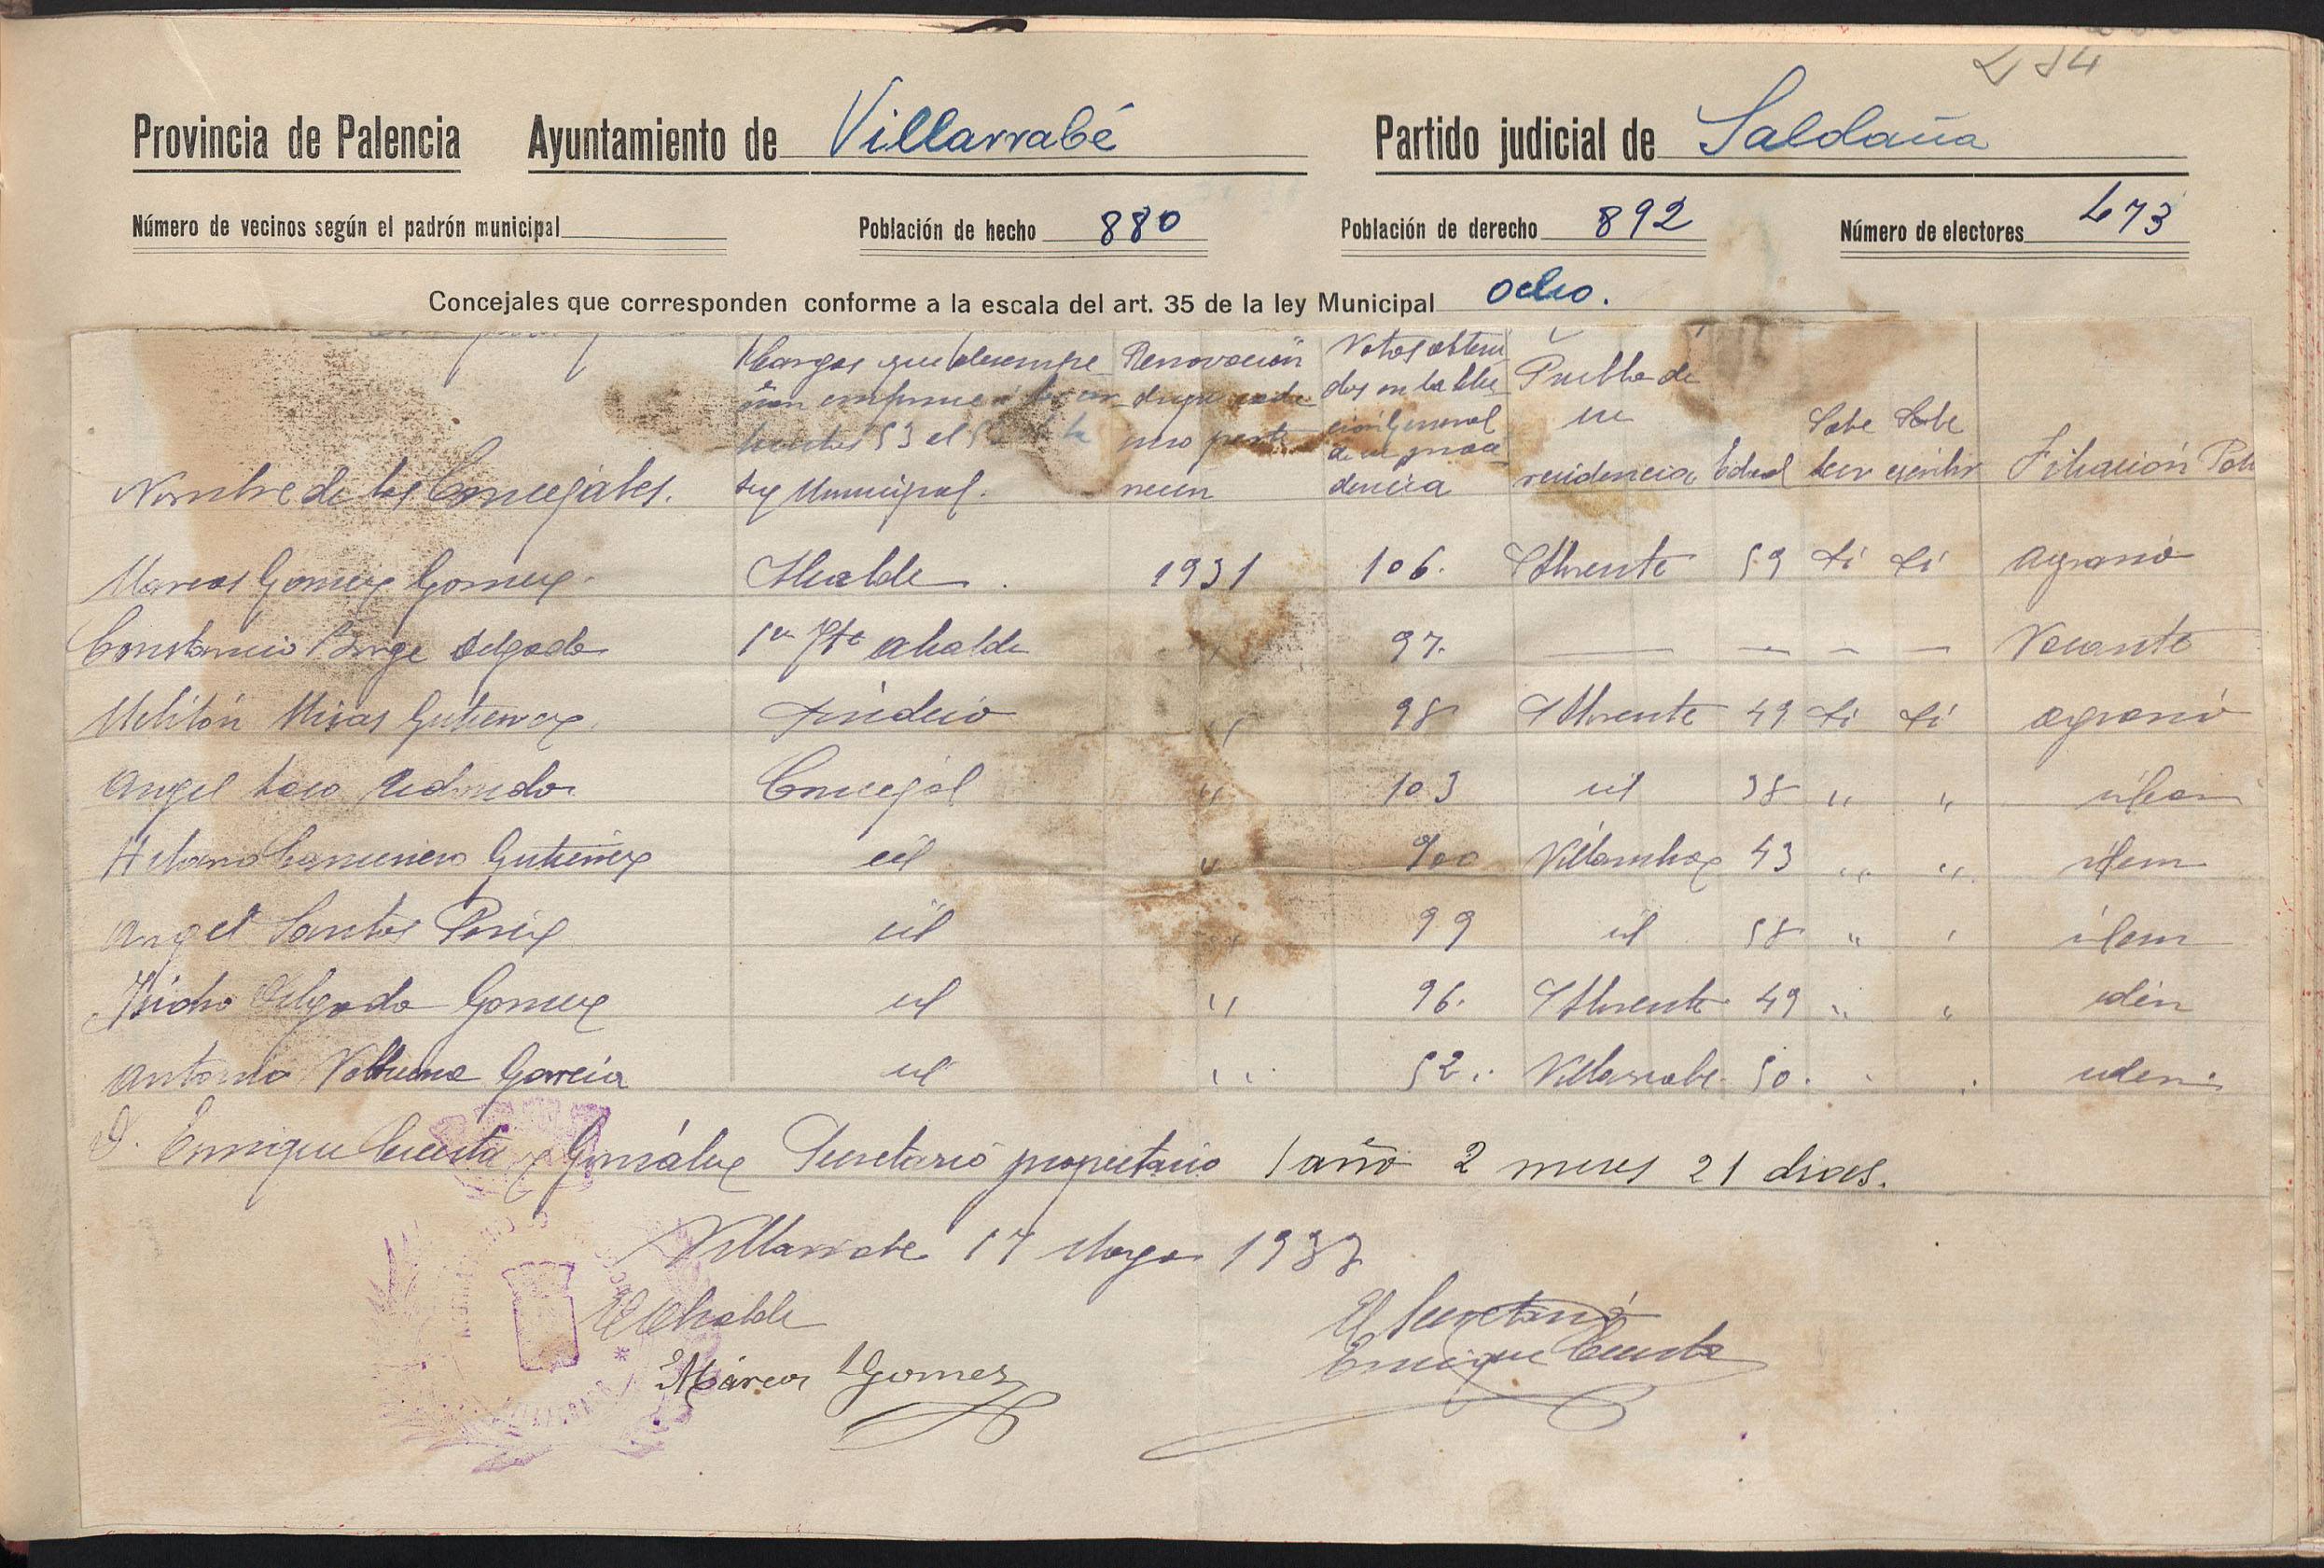 254
Provincia de Palencia Ayuntamiento de Villarrabé Partido judicial de Saldaña
Número de vecinos según el padrón municipal Población de hecho 880 Población de derecho 892 Número de electores 473
Concejales que corresponden conforme a la escala del art. 35 de la ley Municipal ocho.
Nombre de los Concejales. Cargos que desempeñan conforme a los artículos 53 el 5 de la ley Municipal. Renovación a que pertenecen Votos obtenidos en la elección general de su procedencia Pueblo de su residencia Edad Sabe leer Sabe escribir Filiación Poli
Marcos Gomez Gomez. Alcalde. 1931 106. Sthrente 59 si si agrario
Constancio Borge Delgado 1er Tte alcalde " 97. — — — — Vacante
Melitón Misas Gutierrez. Sindico " 98 Sthrente 49 si si agrario
Angel Laso Redondo. Concejal " 103 id 38 " " idem
Gutierrez id " 100 43 " " idem
Angel Santos Perez id " 99 id 58 " " idem
Isidro Delgado Gomez id " 96. 49 " " iden
Antonio García id " 52. Villarrabe. 50. " " iden.
D. Enrique Cuesta y González Secretario propietario 1 año 2 meses 21 dias.
Villarrabe 17 Mayo 1933
El Alcalde El Secretario
Márcos Gomez Enrique Cuesta